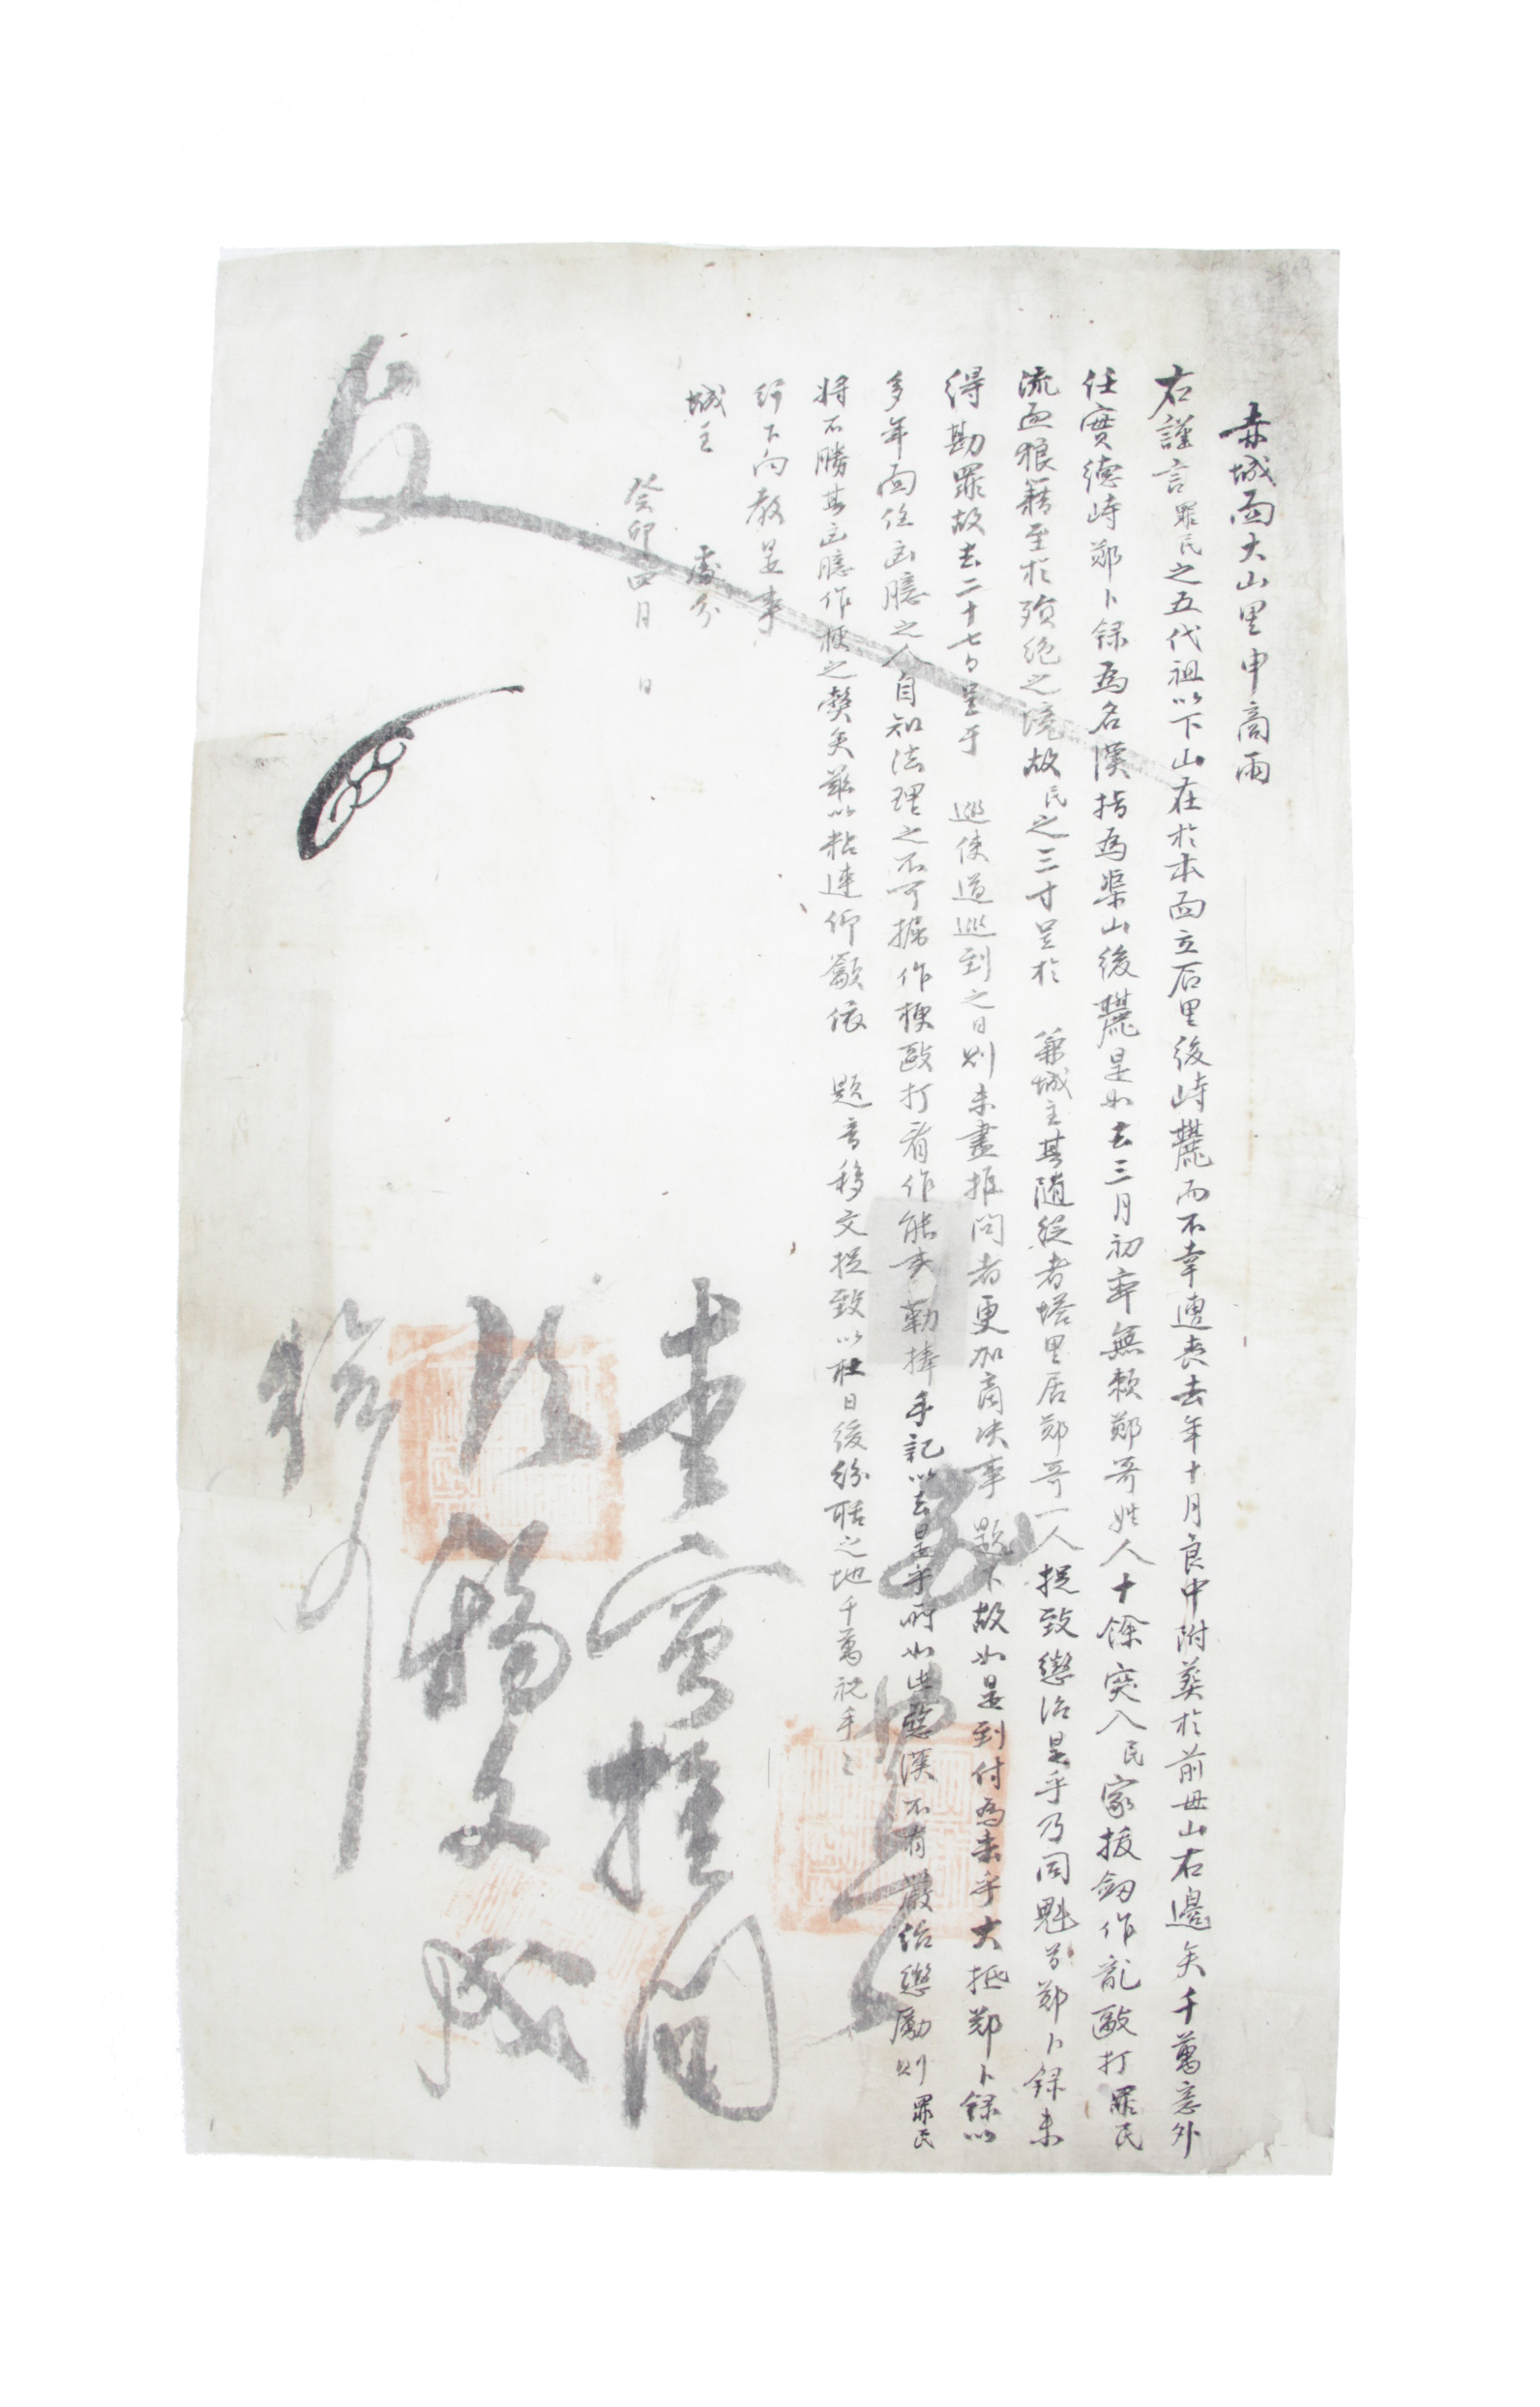 赤城面大山里申商雨
右謹言罪民之五代祖以下山在於本面立石里後峙麓而不幸遭喪去年十月良中附葬於前母山右邊矣千萬意外
任實德峙鄭卜錄爲名漢指爲渠山後麓是如去三月初率無賴鄭哥姓人十餘突入民家拔釼作亂敺打罪民
流血狼藉至於殞絶之境故民之三寸呈於 兼城主其隨從者塔里居鄭哥一人捉致懲治是乎乃同魁首鄭卜錄未
得勘罪故去二十七日呈于 巡使道巡到之日則未盡推問者更加商决事 題下故如是到付爲去乎大抵鄭卜錄以
多年面任凶臆之人自知法理之不可掘作梗敺打看作能事勒捧手記以去是乎所如此惡漢不有嚴治懲勵則罪民
將不勝其凶臆作梗之弊矣玆以粘連仰籲依 題音移文捉致以杜日後紛聒之地千萬祝手々
行下向教是事
城主 處分
癸卯四月 日
査實推問
次移文成